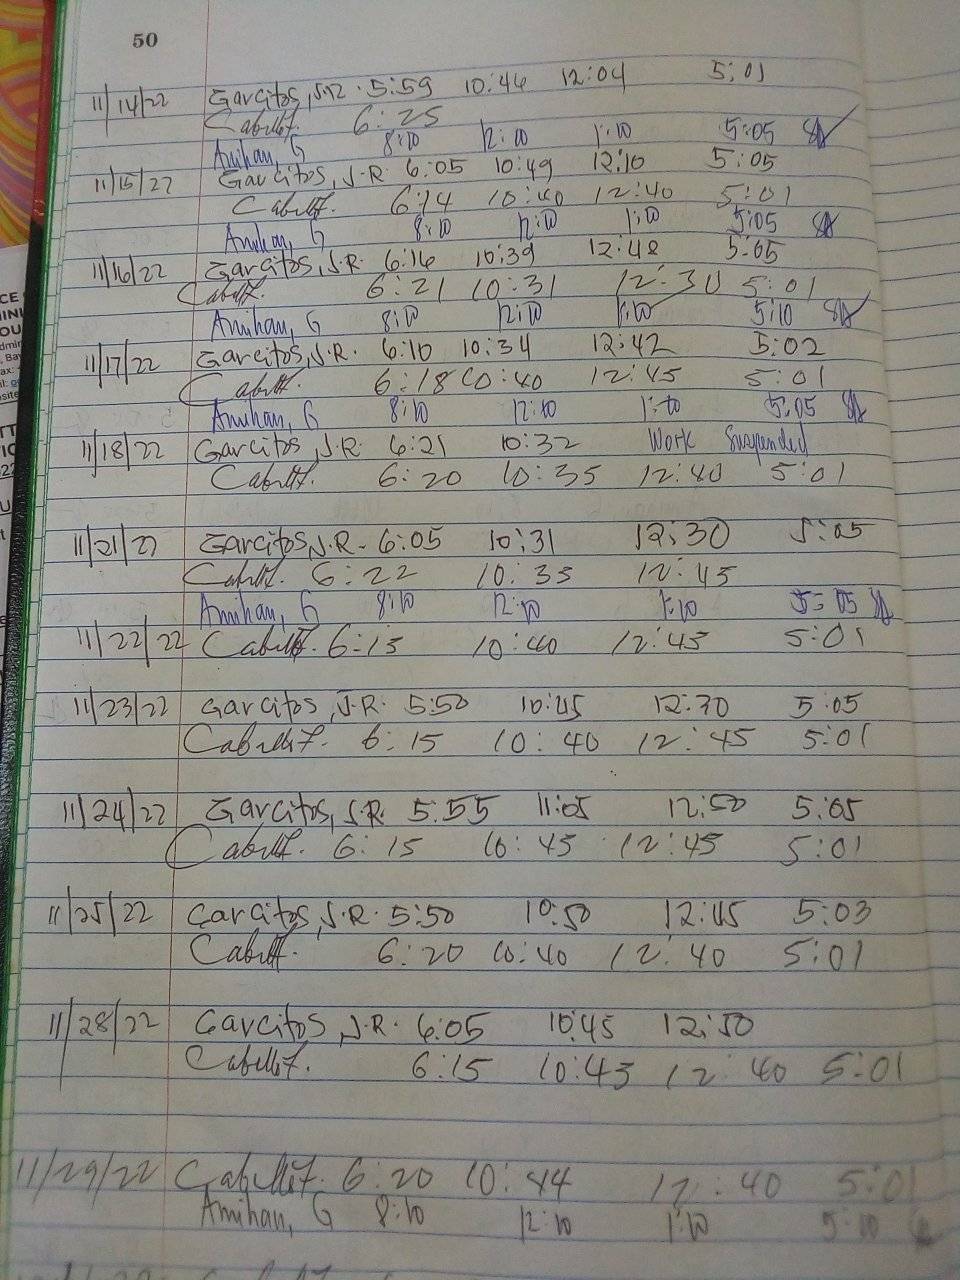 50
11/14/22 Garcitos, J.R. 5:59 10:46 12:04 5:01
Cabillet. 6:25
Amihan, G 8:10 12:10 1:10 5:05
11/15/22 Garcitos, J.R. 6:05 10:49 12:10 5:05
Cabillet. 6:14 10:40 12:40 5:01
Amihan, G 8:10 12:10 1:10 5:05
11/16/22 Garcitos, J.R. 6:16 10:39 12:48 5:05
Cabillet. 6:21 10:31 12:30 5:01
Amihan, G 8:10 12:10 1:10 5:10
11/17/22 Garcitos, J.R. 6:10 10:34 12:42 5:02
Cabillet. 6:18 10:40 12:45 5:01
Amihan, G 8:10 12:10 1:10 5:05
11/18/22 Garcitos, J.R. 6:21 10:32 Work Suspended
Cabillet. 6:20 10:35 12:40 5:01
11/21/22 Garcitos, J.R. 6:05 10:31 12:30 5:05
Cabillet. 6:22 10:35 12:45
Amihan, G 8:10 12:10 1:10 5:05
11/22/22 Cabillet. 6:15 10:40 12:45 5:01
11/23/22 Garcitos, J.R. 5:50 10:45 12:30 5:05
Cabillet. 6:15 10:40 12:45 5:01
11/24/22 Garcitos, J.R. 5:55 11:05 12:50 5:05
Cabillet. 6:15 10:45 12:45 5:01
11/25/22 Garcitos, J.R. 5:50 10:50 12:45 5:03
Cabillet. 6:20 10:40 12:40 5:01
11/28/22 Garcitos, J.R. 6:05 10:45 12:50
Cabillet. 6:15 10:45 12:40 5:01
11/29/22 Cabillet. 6:20 10:44 12:40 5:01
Amihan, G 8:10 12:10 1:10 5:10